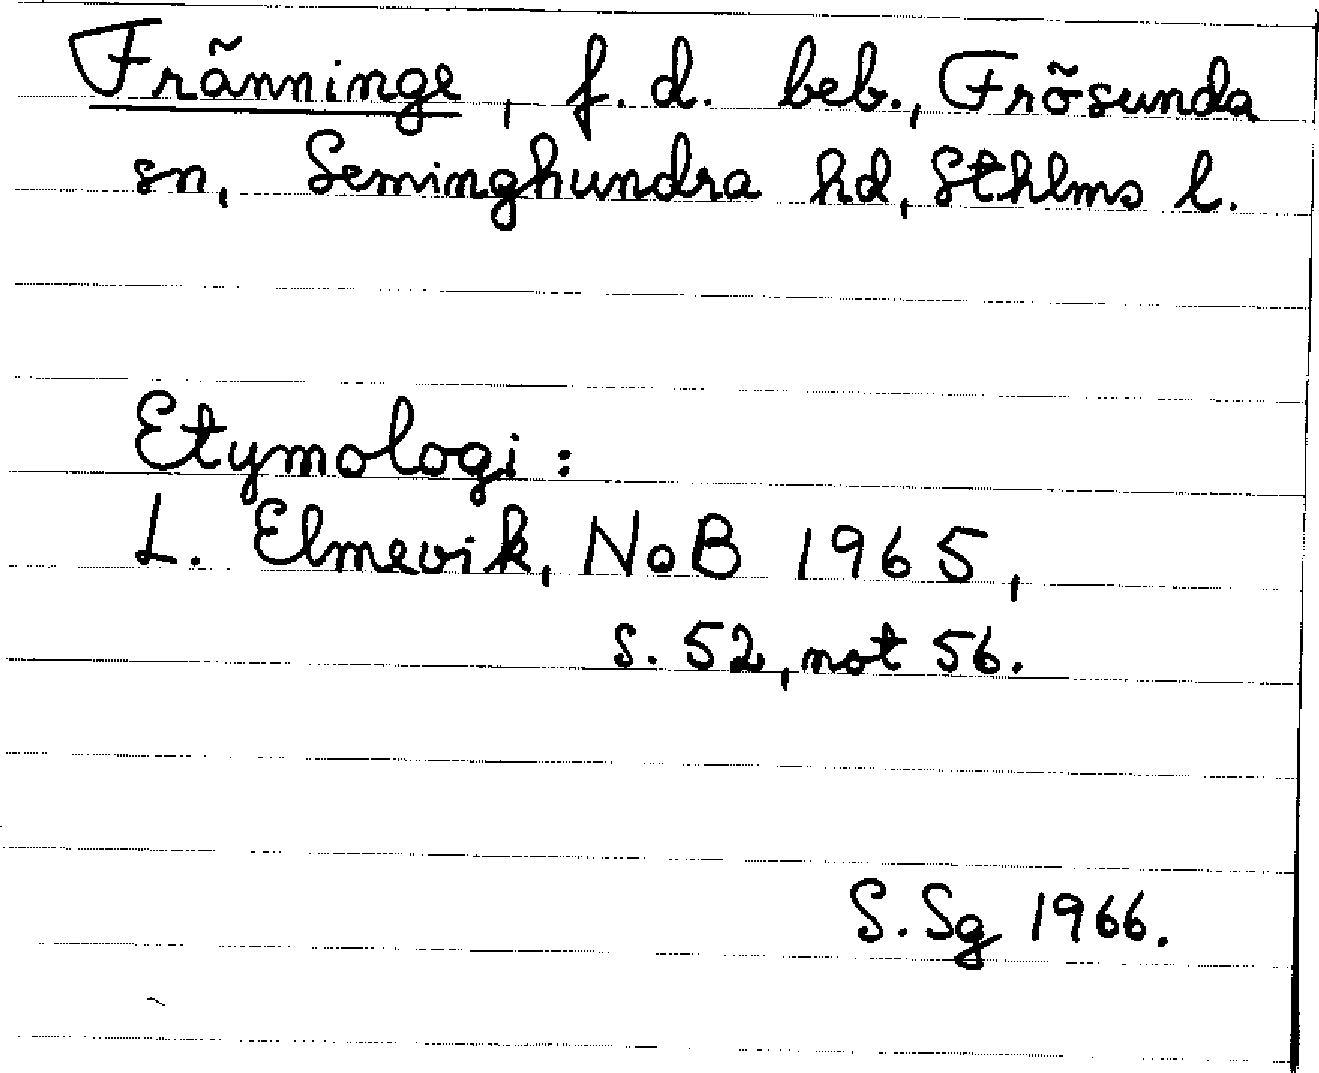 Fränninge, f.d. beb., Frösunda
sn, Seminghundra hd, Sthlms l.
Etymologi:
L. Elmevik, NoB 1965,
s. 52, not 56.
S. Sg 1966.